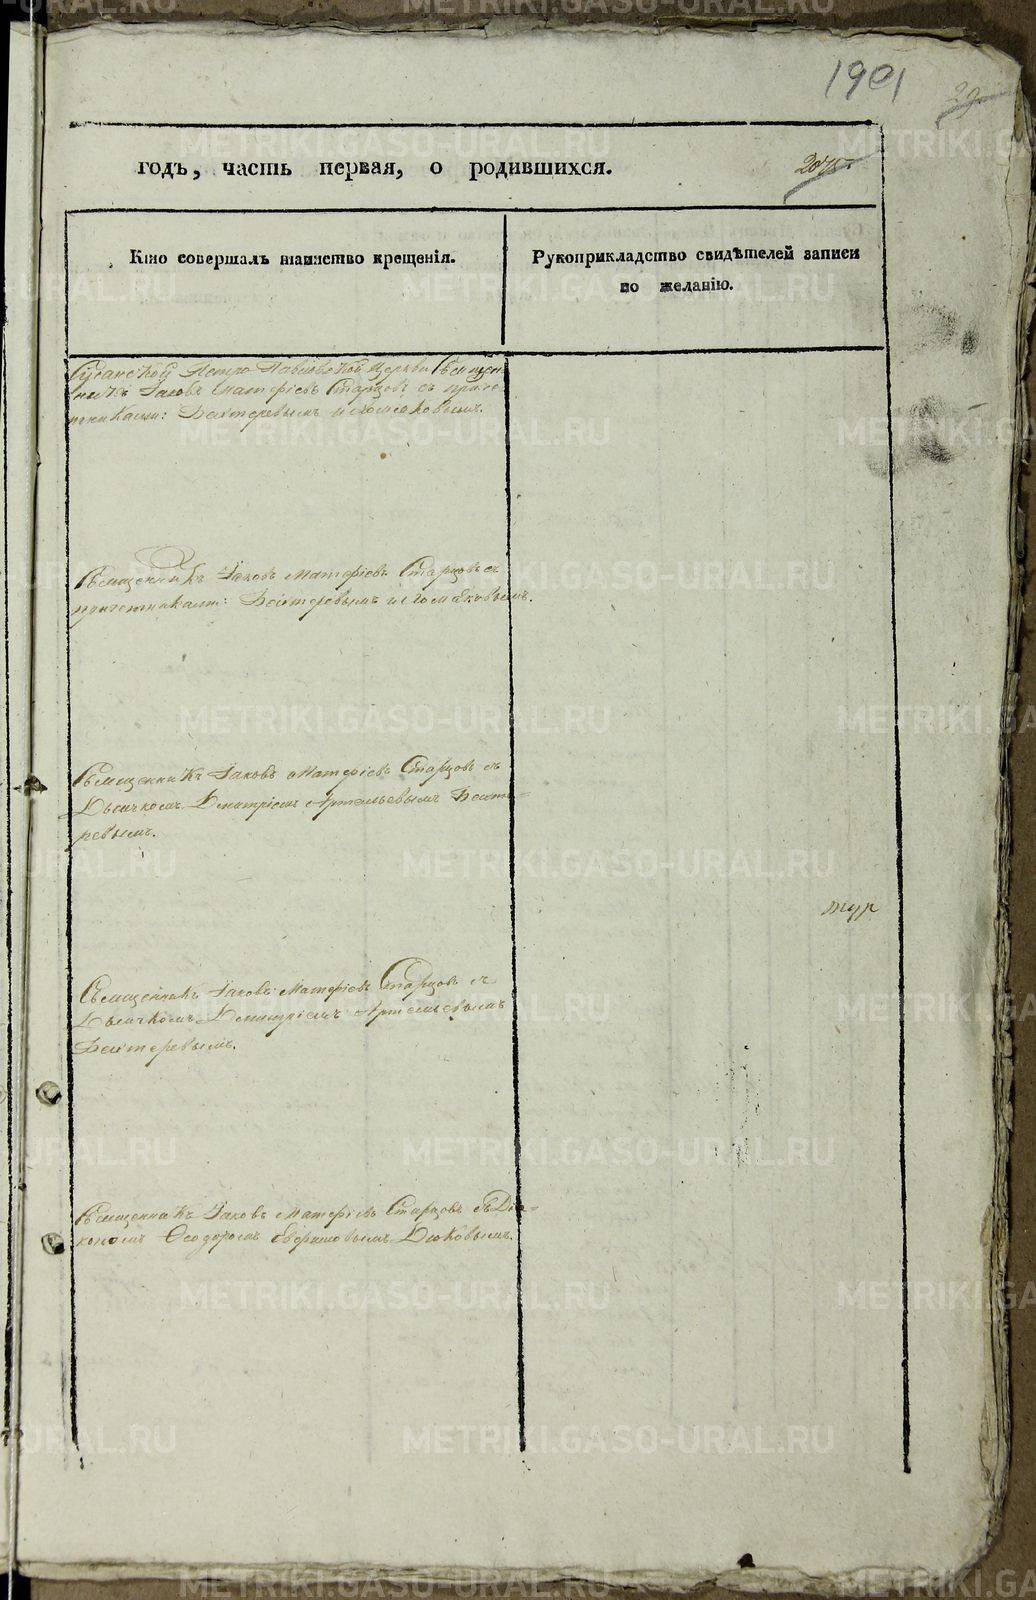 1901
годъ, часть первая, о родившихся.
Кто совершалъ таинство крещенія.
Рукоприкладство свидѣтелей записи
по желанію.
Петро Павловской Церкви Священ
никъ Іаковъ Матфіевъ Старцовъ съ приче
тниками: Бехтеревымъ и
Священникъ Іаковъ Матфіевъ Старцовъ съ
причетниками: Бехтеревымъ и
Священникъ Іаковъ Матфіевъ Старцовъ съ
Дьячкомъ Димитріемъ Артемьевымъ Бехте-
ревымъ.
Священникъ Іаковъ Матфіевъ Старцовъ съ
Дьячкомъ Димитріемъ Артемьевымъ
Бехтеревымъ.
Священникъ Іаковъ Матфіевъ Старцовъ съ Діа-
кономъ Ѳеодоромъ Дюковымъ.
METRIKI.GASO-URAL.RU